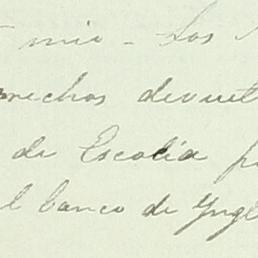 mio - Los
derechos devuel
de Escocia p
el banco de Yngl